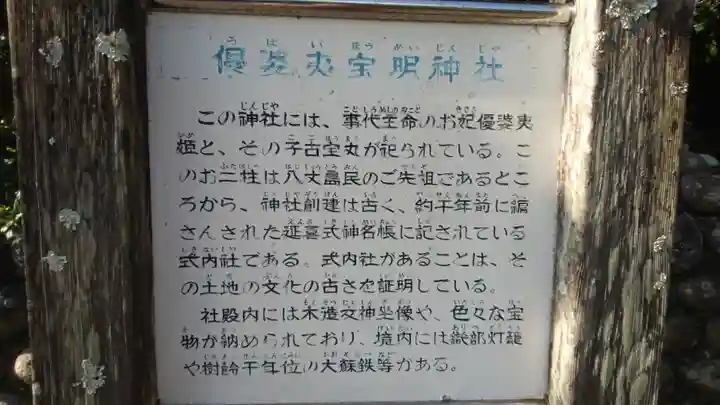 優婆夷宝明神社
この神社には、事代主命のお妃優婆夷
姫と、その子古宝丸が祀られている。こ
のお二柱は八丈島民のご先祖であるとこ
ろから、神社創建は古く、約千年前に編
さんされた延喜式神名帳に記されている
式内社である。式内社があることは、そ
の土地の文化の古さを証明している。
社殿内には木造女神坐像や、色々な宝
物が納められており、境内には織部灯籠
や樹齢千年位の大蘇鉄等がある。